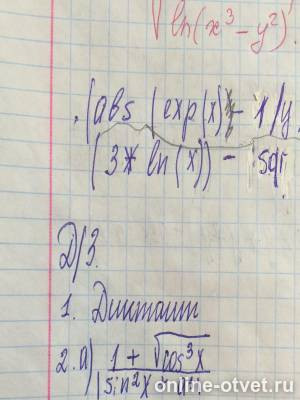 √ln(x³ - y²)
(abs (exp(x) - 1/y
(3* ln(x)) - sqr
Д/З.
1. Диктант
2. а) 1 + √cos³x
|sin²x
online-otvet.ru